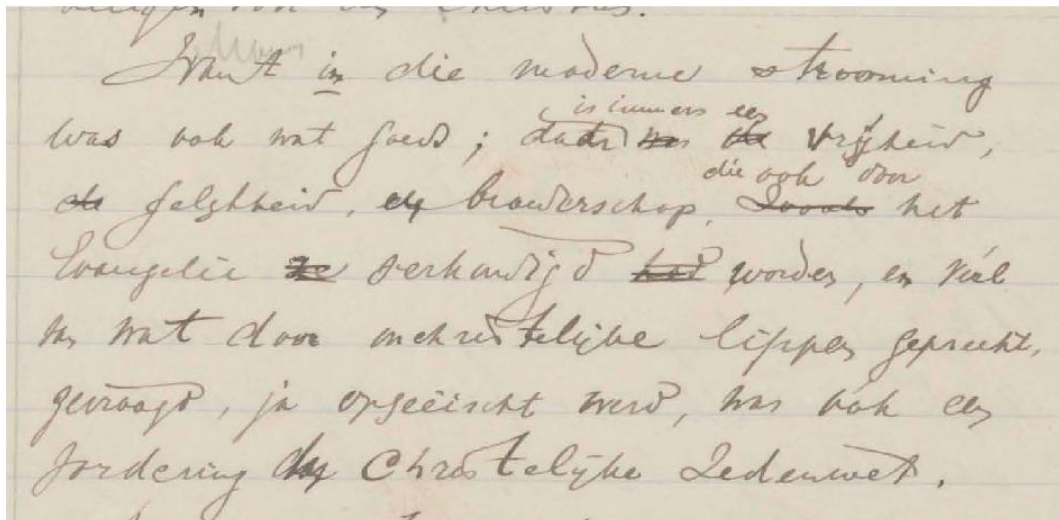 Want in die moderne strooming
was ook wat goeds; dadr is immers een vrijheid,
gelijkheid, en broederschap, die ook door het
Evangelie verkondigd worden, en véél
van wat door onchristelijke lippen gepreekt,
gevraagd, ja opgeëischt werd, was ook een
fordering der Christelijke Zedenwet.